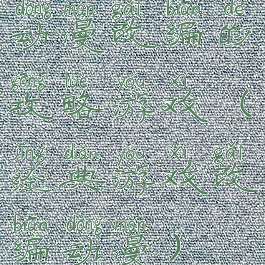 dòng màn gǎi biān de
动漫改编的
gōng lüè yóu xì
攻略游戏（
jīng diǎn yóu xì gǎi
经典游戏改
biān dòng màn
编动漫）